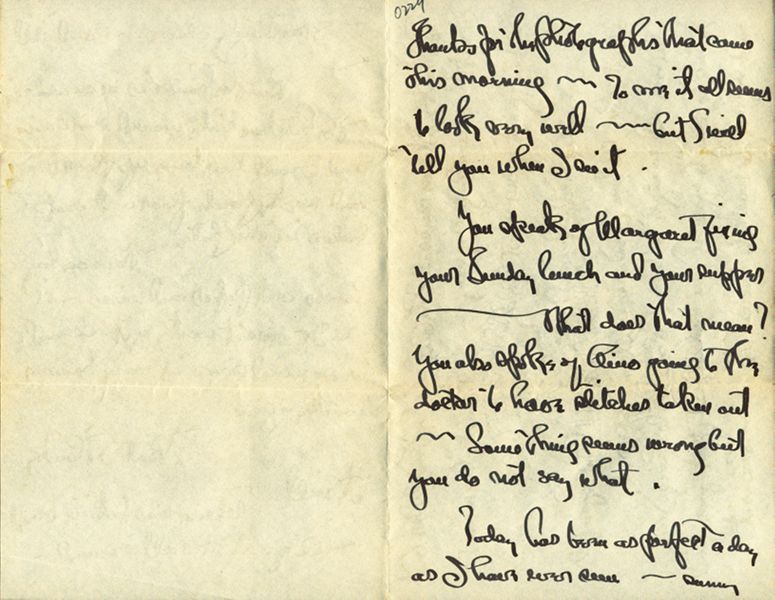 0229
Thanks for the photographs that came
this morning ~ To me it all seems
to look very well ~ but I will
tell you when I see it.
You speak of Margaret fixing
your Sunday lunch and your supper
— What does that mean?
You also spoke of Tino going to the
doctor to have stitches taken out
~ Something seems wrong but
you do not say what.
Today has been as perfect a day
as I have ever seen ~ sunny